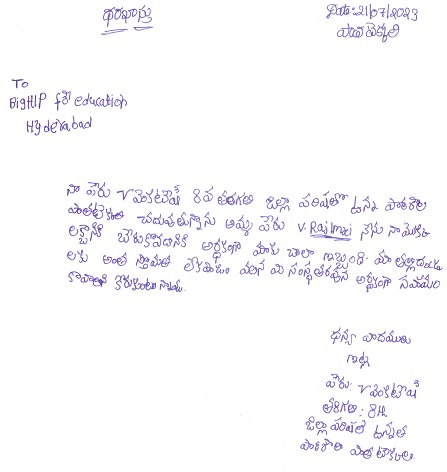 ధరఖాస్తు
Date: 21/07/2023
To
BigHIP for education
Hyderabad
నా పేరు V వెంకటేష్ 8వ తరగతి జిల్లా పరిషత్ ఉన్న పాఠశాల
చదువుతున్నాను అమ్మ పేరు V. Rajimani నేను నా
అర్థికంగా మాకు చాలా ఇబ్బంది. మా తల్లిదండ్రు
లకు అంత స్తోమత లేకపోవడం వలన మీ సంస్థ తరఫున అర్థికంగా సహాయం
కావాలని కోరుకుంటున్నాను.
ధన్యవాదములు
ఇట్లు
పేరు: V వెంకటేష్
తరగతి: 8th
జిల్లా పరిషత్ ఉన్నత
పాఠశాల